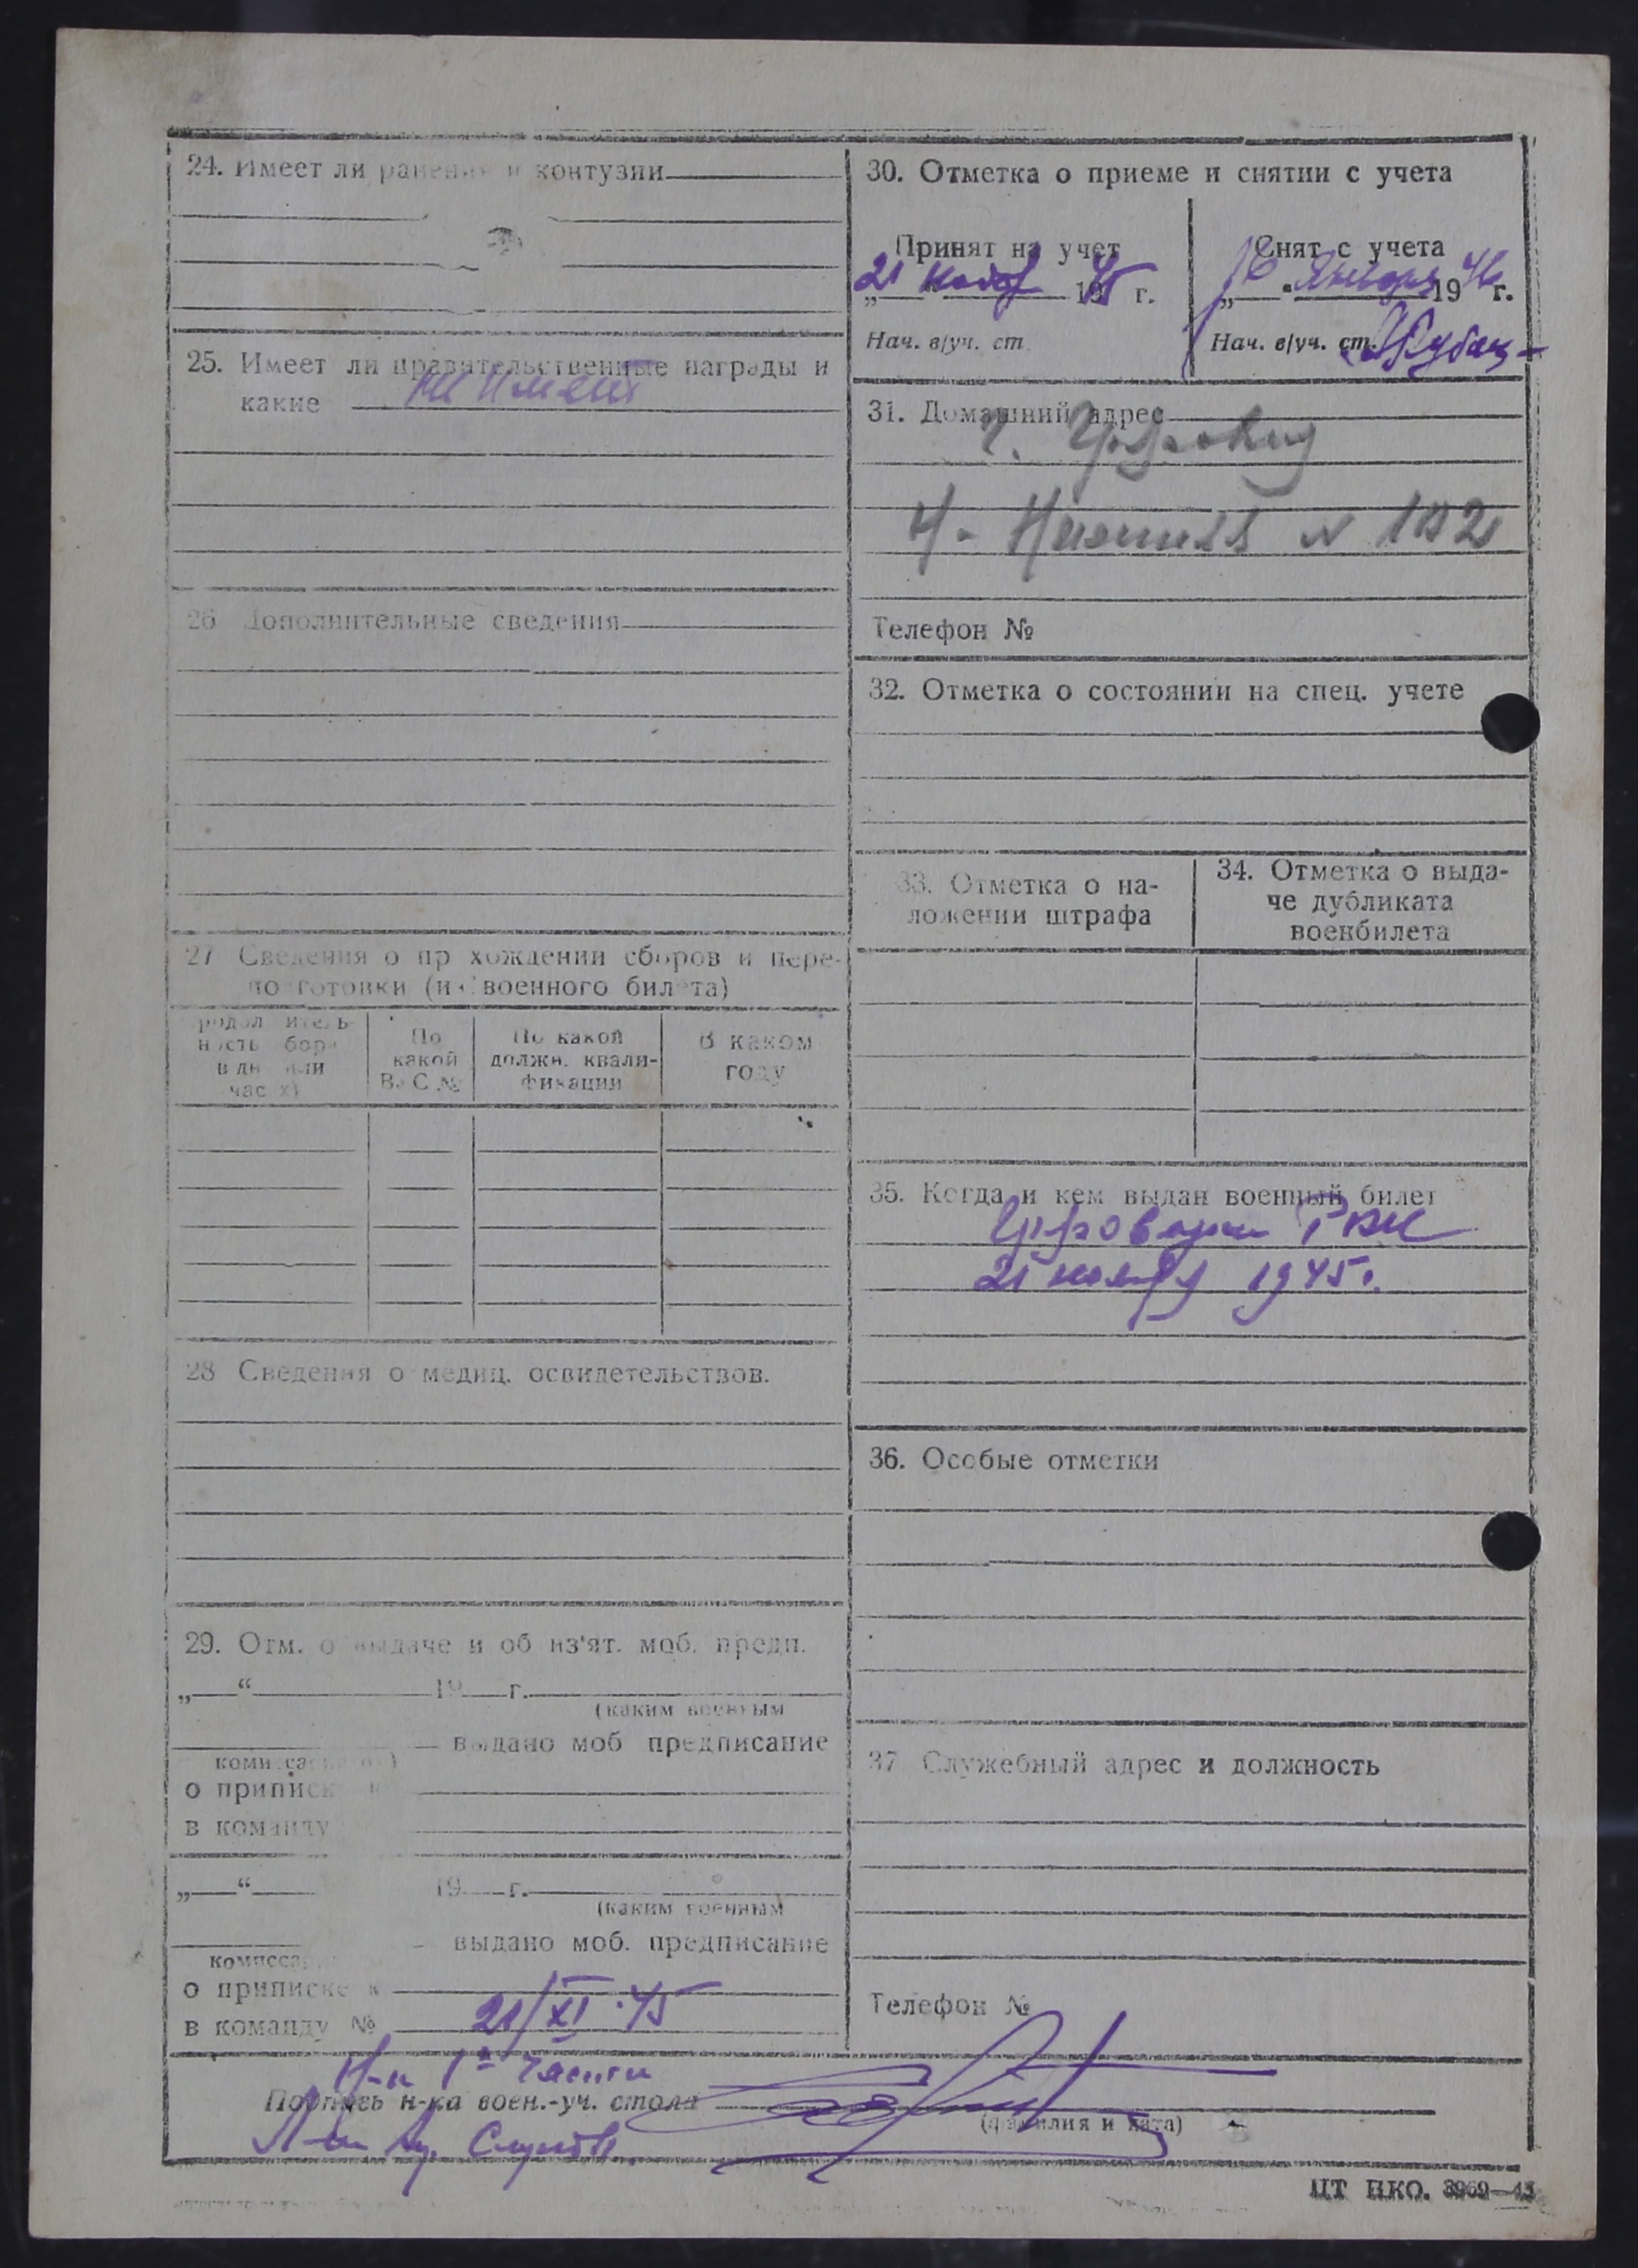 24. Имеет ли ранения и контузии
25. Имеет ли правительственные награды и
какие не имеет
26 Дополнительные сведения
27 Сведения о прохождении сборов и пере-
подготовки (из военного билета)
Продолжитель-
ность сбора
в дн. или
часах)
По
какой
ВУС №
По какой
должн. квали-
фикации
В каком
году
28 Сведения о медиц. освидетельствов.
29. Отм. о выдаче и об из'ят. моб. предп.
„ “ 19 г.
(каким военным
выдано моб предписание
комиссариатом)
о приписке к
в команду
„ “ 19 г.
(каким военным
выдано моб. предписание
комиссар
о приписке к
в команду № 21/XI-45
30. Отметка о приеме и снятии с учета
Принят на учет
21 нояб 1945 г.
Нач. в/уч. ст.
Снят с учета
16 Января 1946 г.
Нач. в/уч. ст.
31. Домашний адрес
г.
№ 102
Телефон №
32. Отметка о состоянии на спец. учете
33. Отметка о на-
ложении штрафа
34. Отметка о выда-
че дубликата
военбилета
35. Когда и кем выдан военный билет
РВК
21 ноября 1945г.
36. Особые отметки
37 Служебный адрес и должность
Телефон №
Н-к 1й части
Подпись н-ка воен.-уч. стола
(фамилия и дата)
ЦТ НКО. 3969—43